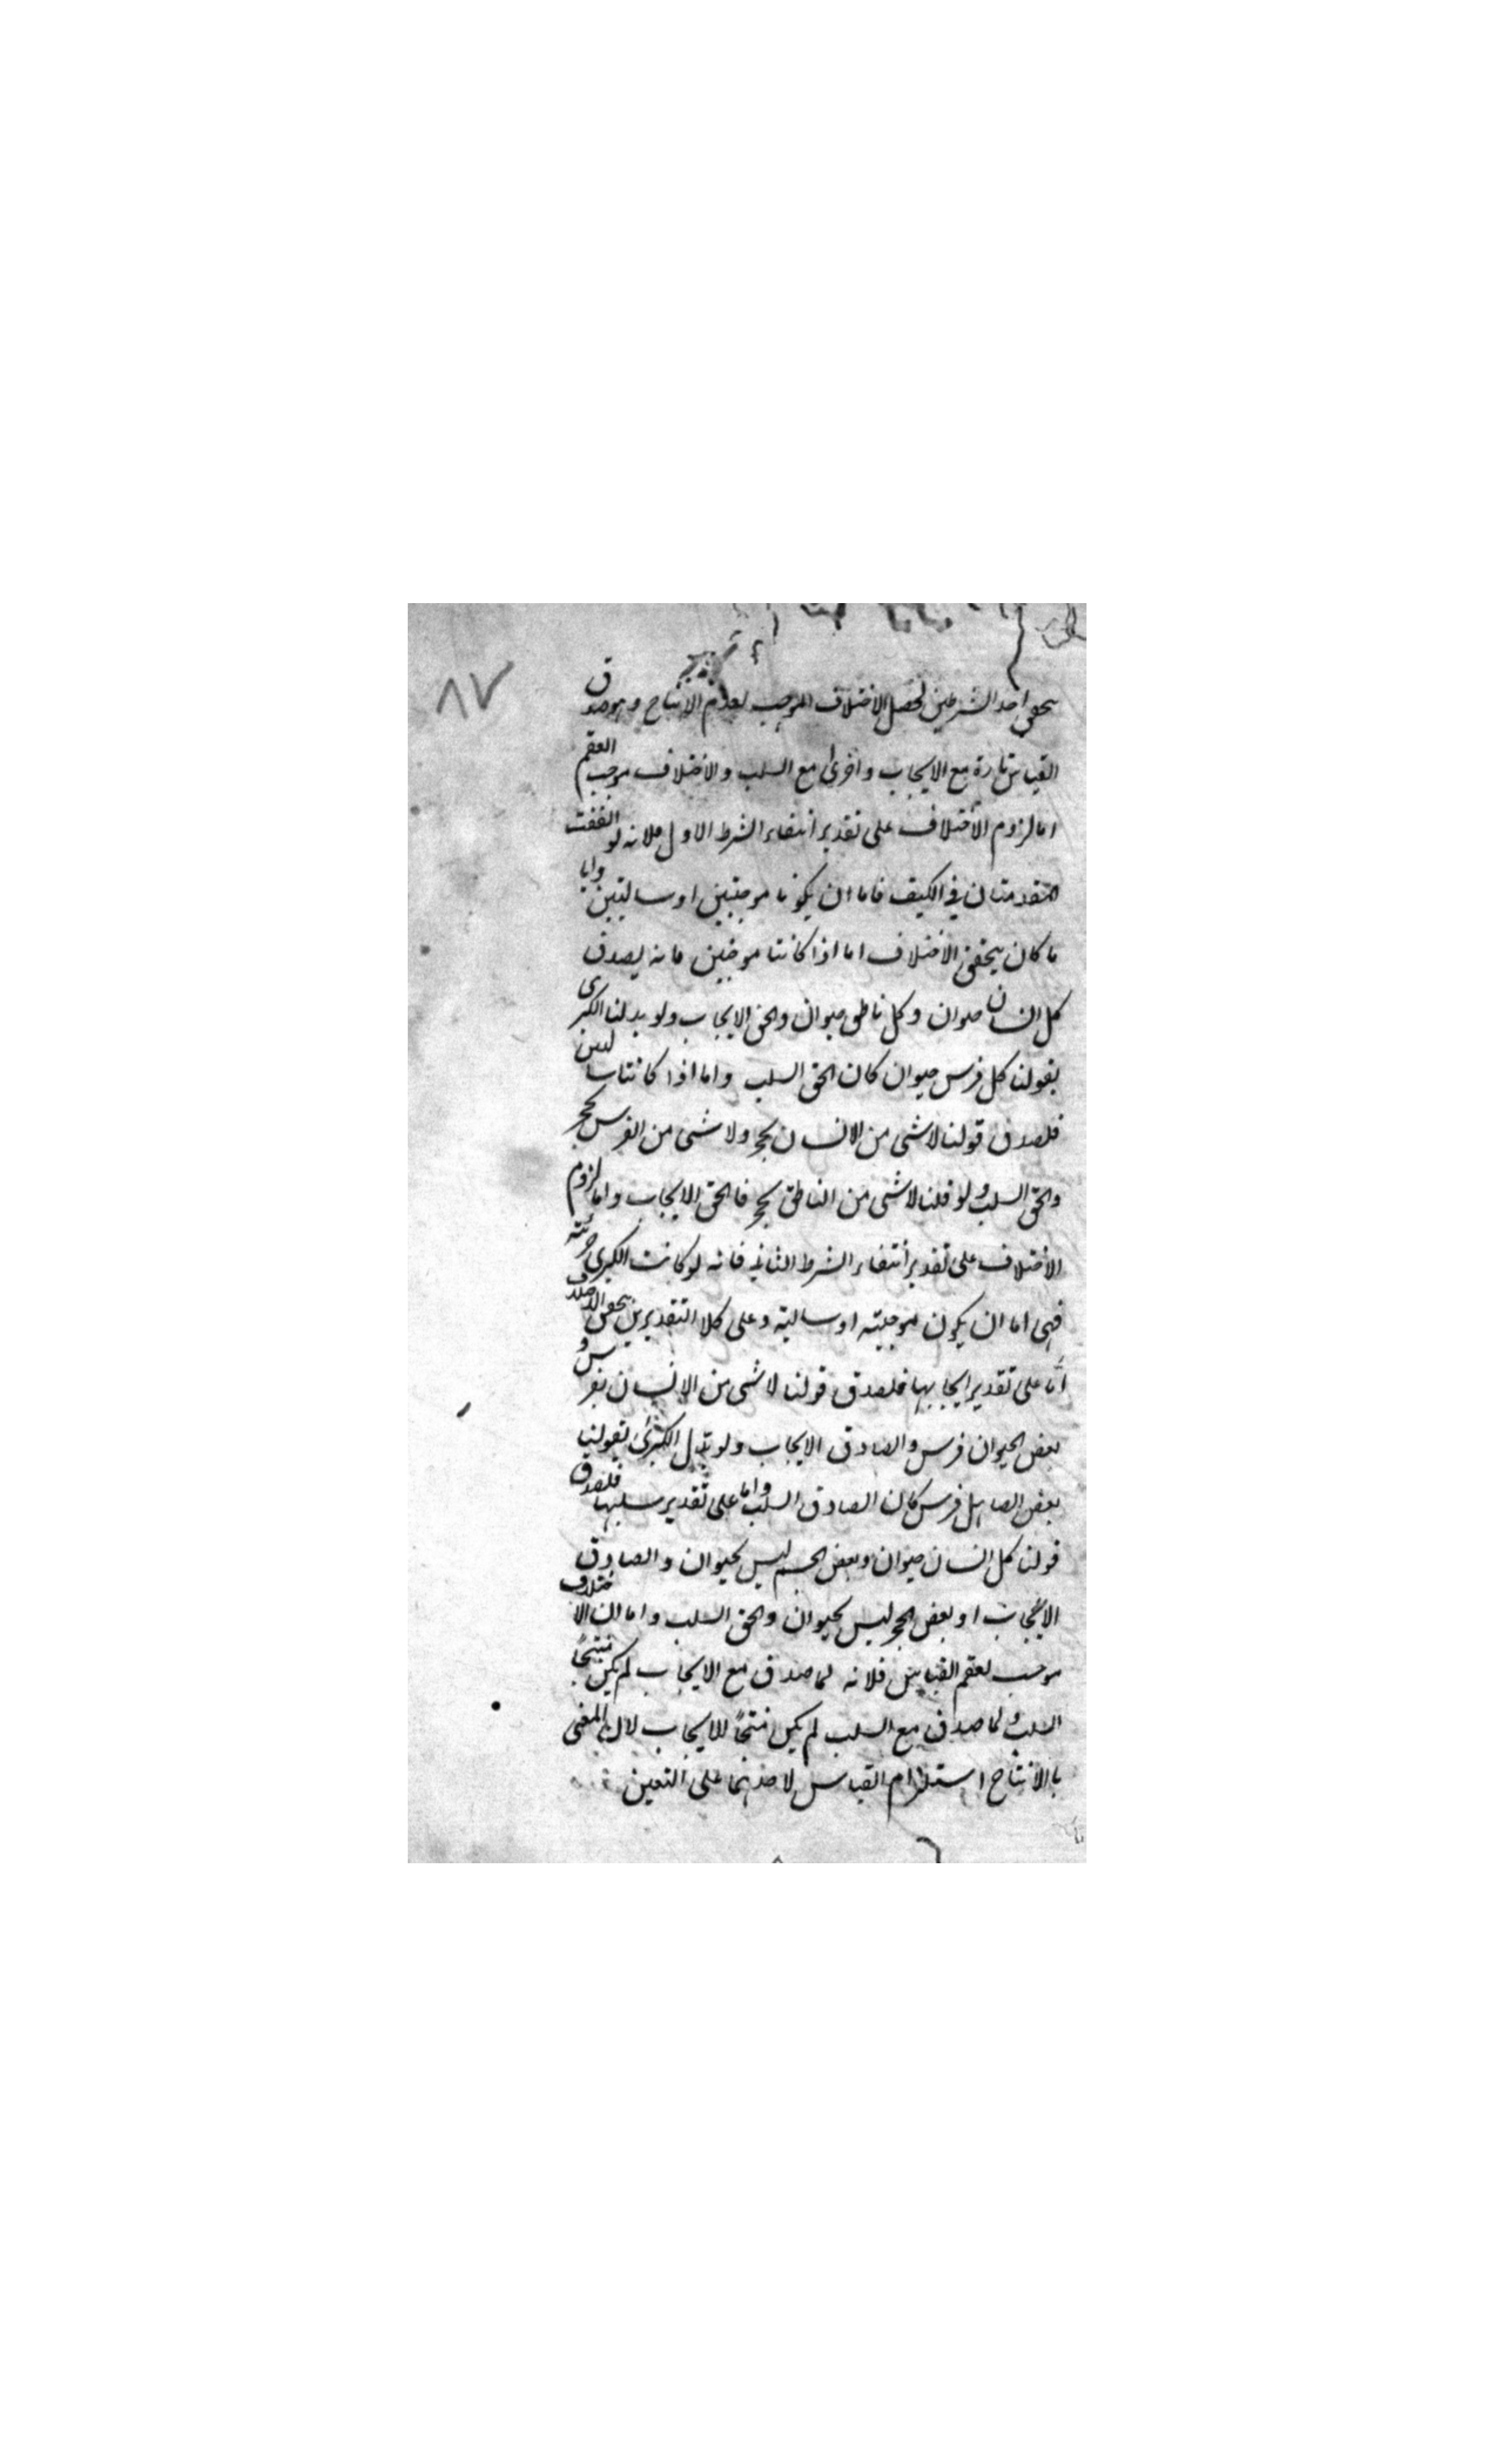 ٨٧
يتحقق احد الشرطين لحصل الاختلاف الموجب لعدم الانتاج وهو صدق
القياس تارة مع الايجاب واخرى مع السلب والاختلاف موجب العقم
اما لزوم الاختلاف على تقدير انتفاء الشرط الاول فلانه لو اتفقت
المقدمتان في الكيف فاما ان يكونا موجبتين او سالبتين وايا
ما كان يتحقق الاختلاف اما اذا كانتا موجبتين فانه يصدق
كل انسان حيوان وكل ناطق حيوان والحق الايجاب ولو بدلنا الكبرى
بقولنا كل فرس حيوان كان الحق السلب واما اذا كانتا سالبتين
فلصدق قولنا لا شي من الانسان بحجر ولا شي من الفرس بحجر
والحق السلب ولو قلنا لا شي من الناطق بحجر فالحق الايجاب واما لزوم
الاختلاف على تقدير انتفاء الشرط الثاني فانه لو كانت الكبرى جزئية
فهي اما ان يكون موجبته او سالبته وعلى كلا التقديرين يتحقق الاختلاف
امّا على تقدير ايجابها فلصدق قولنا لا شي من الانسان بفرس و
بعض الحيوان فرس والصادق الايجاب ولو بدل الكبرى بقولنا
بعض الصاهل فرس كان الصادق السلب واما على تقدير سلبها فلصدق
قولنا كل انسان حيوان وبعض الجسم ليس بحيوان والصادق
الايجاب او بعض الحجر ليس بحيوان والحق السلب واما ان الاختلاف
موجب لعقم القياس فلانه لما صدق مع الايجاب لم يكن منتجًا
السلب ولما صدق مع السلب لم يكن منتجًا للايجاب لان المعنى
بالانتاج استلزام القياس لاحدهما على التعين